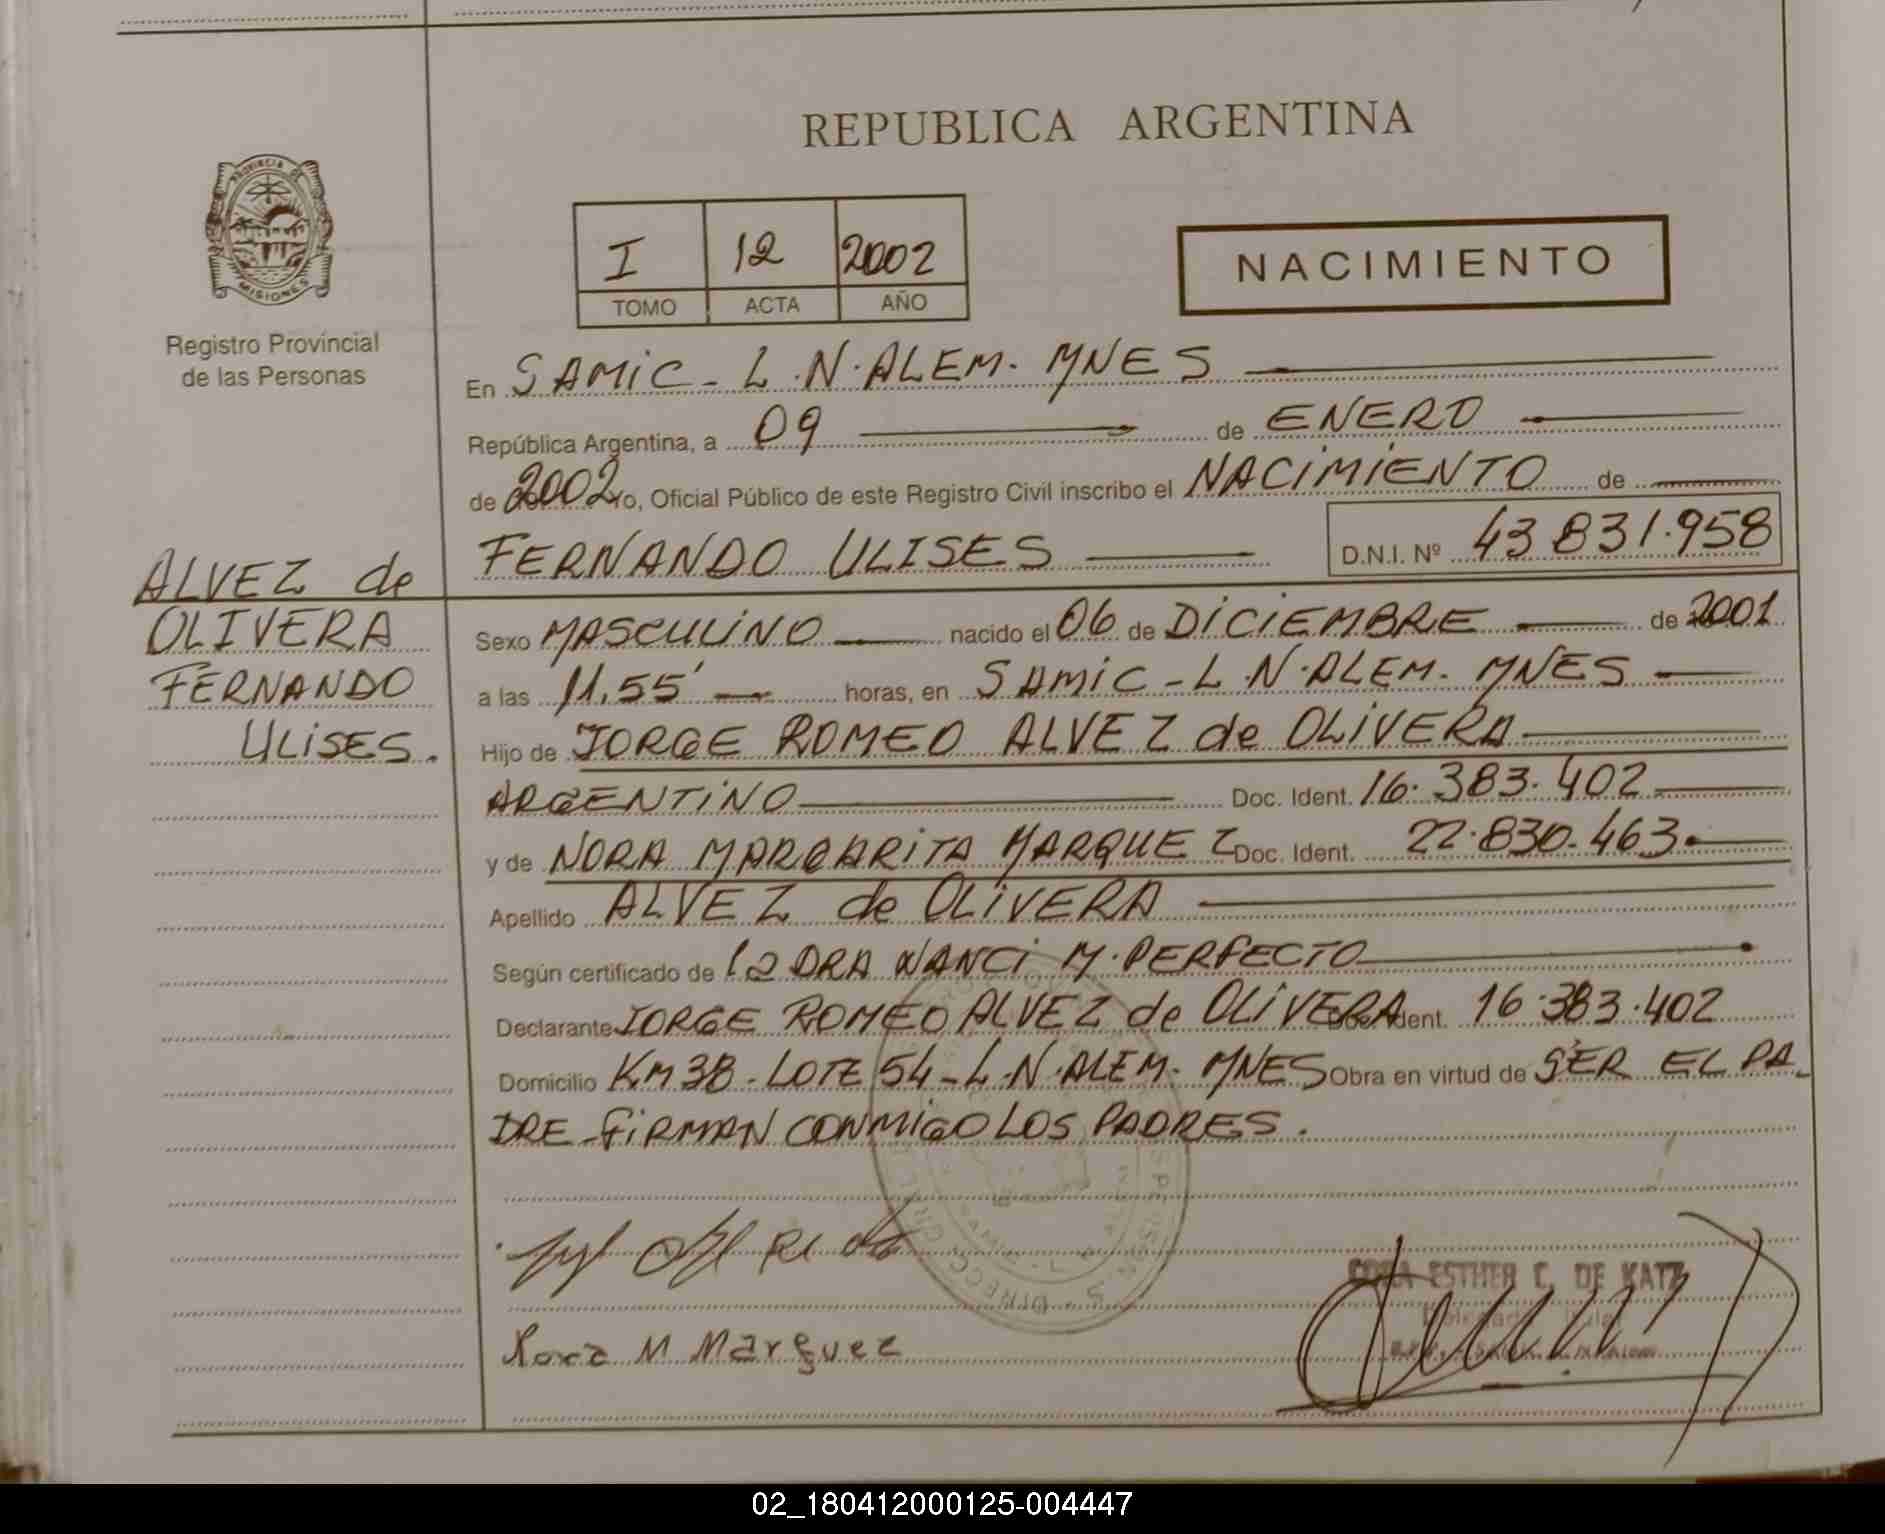 REPUBLICA ARGENTINA
PROVINCIA DE
MISIONES
Registro Provincial
de las Personas
I 12 2002
TOMO ACTA AÑO
NACIMIENTO
En SAMIC - L.N. ALEM. MNES
República Argentina, a 09 de ENERO
de 2002 Yo, Oficial Público de este Registro Civil inscribo el NACIMIENTO de
FERNANDO ULISES D.N.I. Nº 43 831.958
ALVEZ de
OLIVERA
FERNANDO
ULISES.
Sexo MASCULINO nacido el 06 de DICIEMBRE de 2001
a las 11.55' horas, en SAMIC - L.N. ALEM. MNES
Hijo de JORGE ROMEO ALVEZ de OLIVERA
ARGENTINO Doc. Ident. 16.383.402
y de NORA MARGARITA MARQUEZ Doc. Ident. 22.830.463
Apellido ALVEZ de OLIVERA
Según certificado de la DRA NANCI M. PERFECTO
Declarante JORGE ROMEO ALVEZ de OLIVERA Doc. Ident. 16.383.402
Domicilio KM 38 - LOTE 54 - L.N. ALEM. MNES Obra en virtud de SER EL PA-
DRE - FIRMAN CONMIGO LOS PADRES.
ESTHER C. DE KATZ
M Marquez
02_180412000125-004447